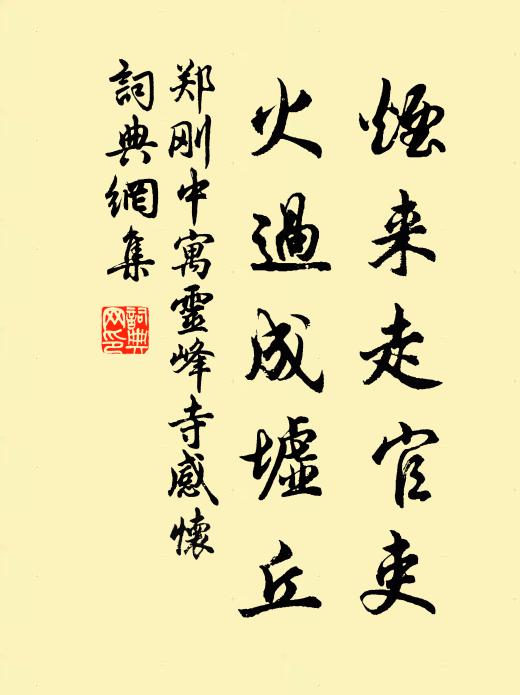 煙来走官吏
火過成墟丘
郑刚中寓靈峰寺感懷
詞典網集
詞典網印